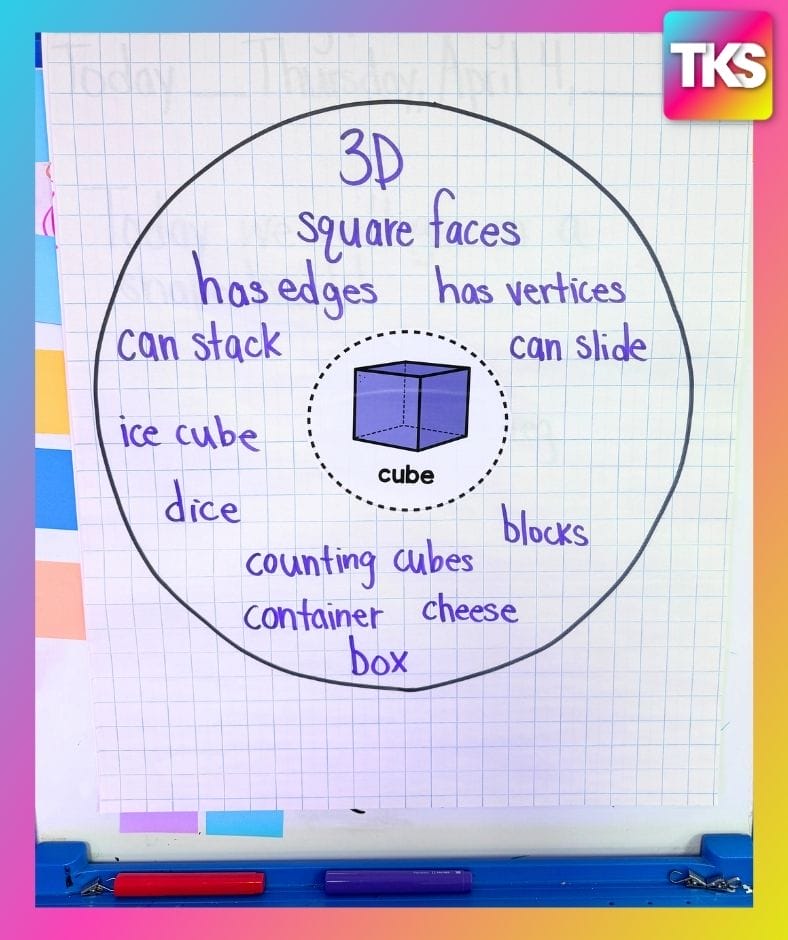 TKS
Today Thursday, April 4,
3D
square faces
has edges has vertices
can stack can slide
cube
ice cube
dice
blocks
counting cubes
container cheese
box